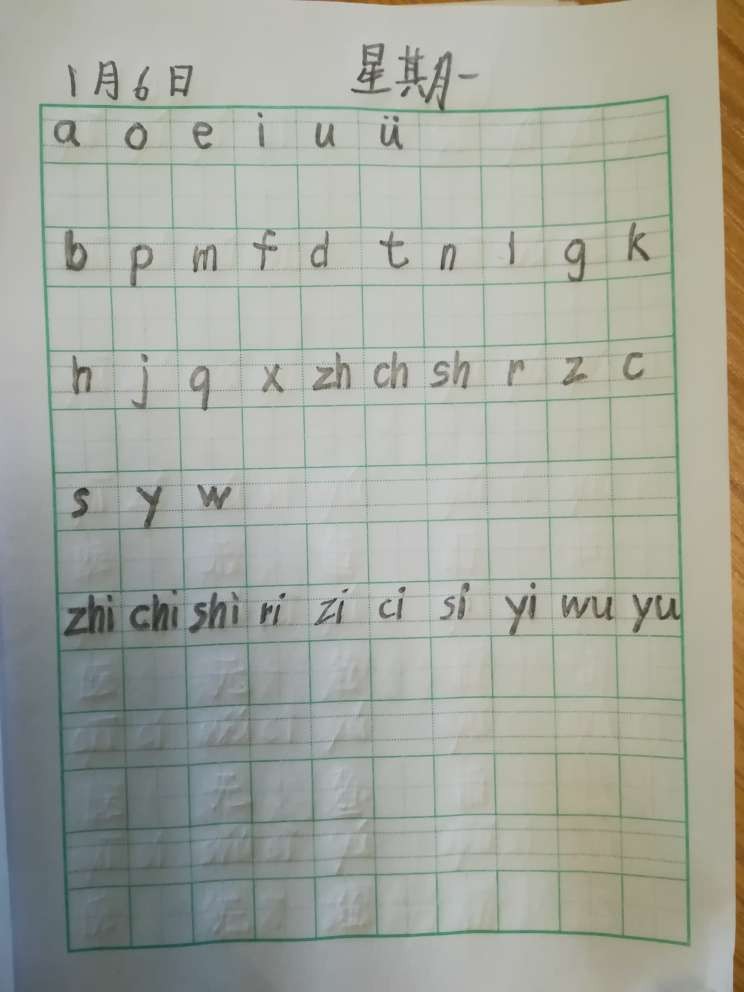 1月6日 星期一
a o e i u ü
b p m f d t n l g k
h j q x zh ch sh r z c
s y w
zhi chi shi ri zi ci si yi wu yu